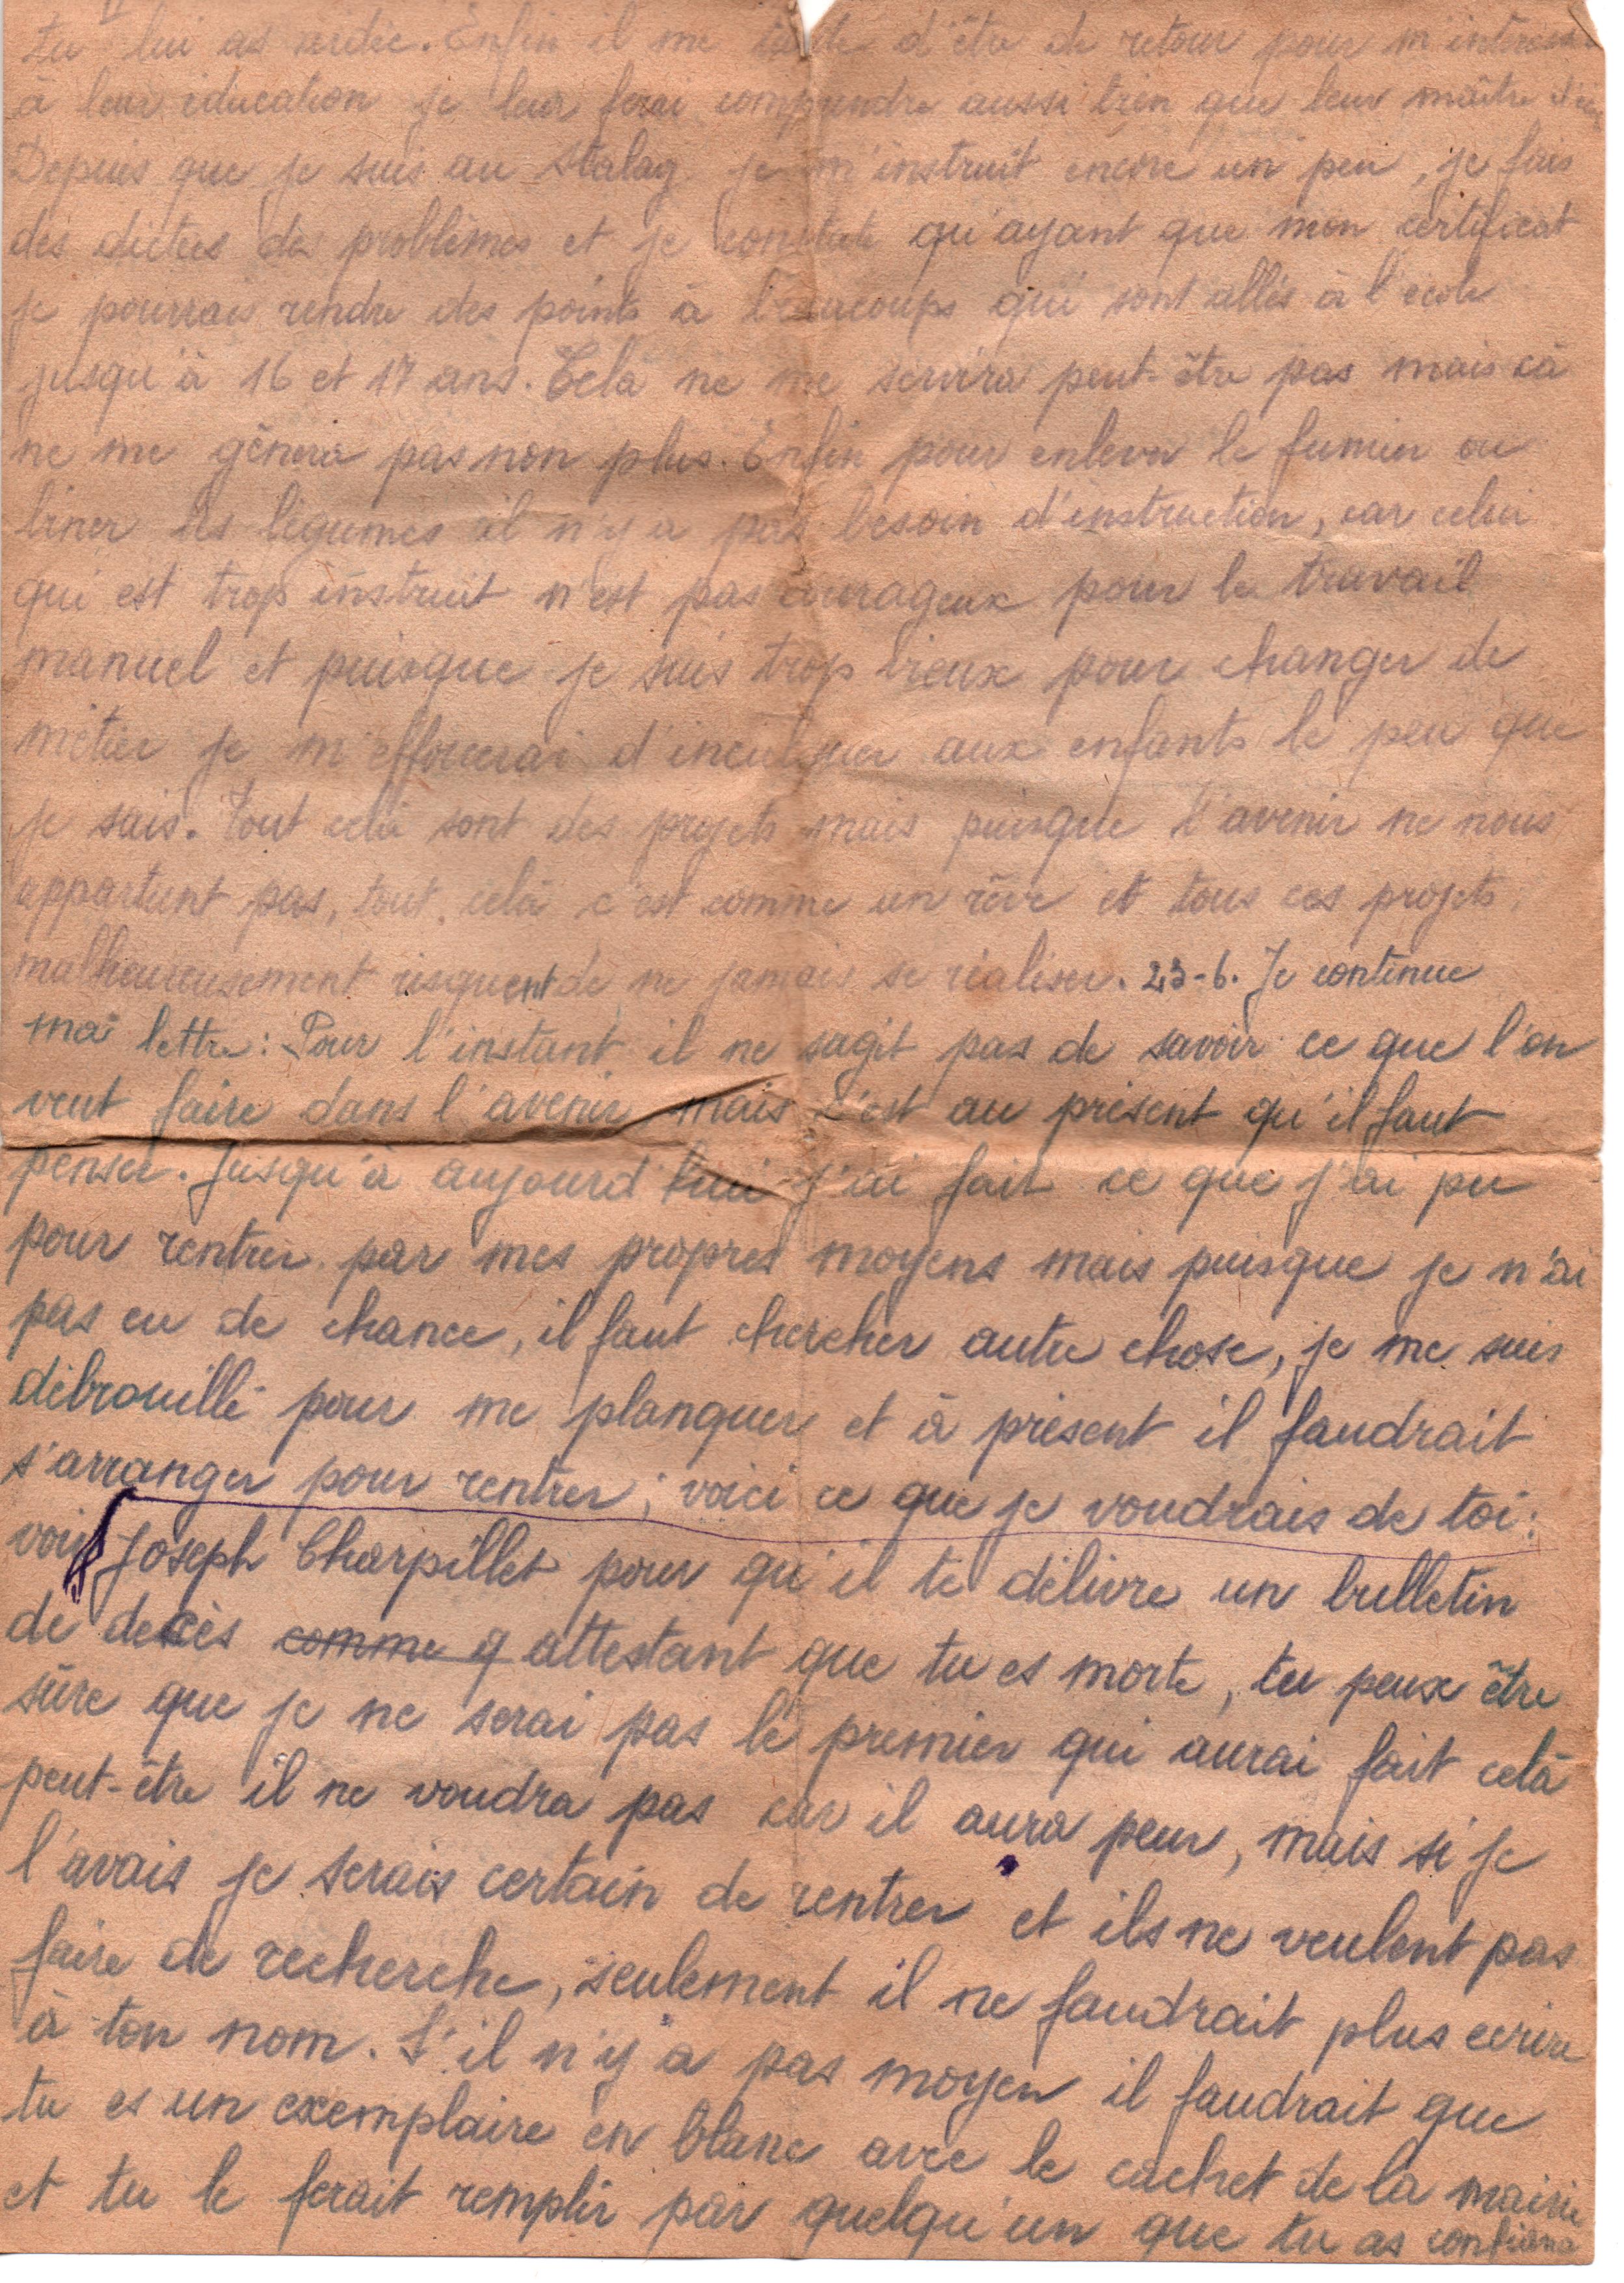 tu lui as                . Enfin il me tarde d'être de retour pour m'intéresser
à leur éducation je leur ferai comprendre aussi bien que leur maître
Depuis que je suis au Stalag je m'instruit encore un peu, je fais
des dictées des problèmes et je constate qu'ayant que mon certificat
je pourrais rendre des points à beaucoups qui sont allés à l'école
jusqu'à 16 et 17 ans. Celà ne me servira peut-être pas mais cà
ne me gênera pas non plus. Enfin pour enlever le fumier ou
biner les légumes il n'y a pas besoin d'instruction, car celui
qui est trop instruit n'est pas courageux pour le travail
manuel et puisque je suis trop vieux pour changer de
métier je m'efforcerai d'inculquer aux enfants le peu que
je sais. Tout celà sont des projets mais puisque l'avenir ne nous
appartient pas, tout celà c'est comme un rêve et tous ces projets
malheureusement risquent de ne jamais se réaliser. 23-6. Je continue
ma lettre: Pour l'instant il ne sagit pas de savoir ce que l'on
veut faire dans l'avenir mais c'est au présent qu'il faut
penser. Jusqu'à aujourd'hui j'ai fait ce que j'ai pu
pour rentrer par mes propres moyens mais puisque je n'ai
pas eu de chance, il faut chercher autre chose, je me suis
débrouillé pour me planquer et à présent il faudrait
s'arranger pour rentrer; voici ce que je voudrais de toi:
voir Joseph Charpillet pour qu'il te délivre un bulletin
de decès comme q attestant que tu es morte, tu peux être
sûre que je ne serai pas le premier qui aurai fait celà
peut-être il ne voudra pas car il aura peur, mais si je
l'avais je serais certain de rentrer et ils ne veulent pas
faire de recherche, seulement il ne faudrait plus écrire
à ton nom. S'il n'y a pas moyen il faudrait que
tu es un exemplaire en blanc avec le cachet de la mairie
et tu le ferait remplir par quelqu'un que tu as confiance